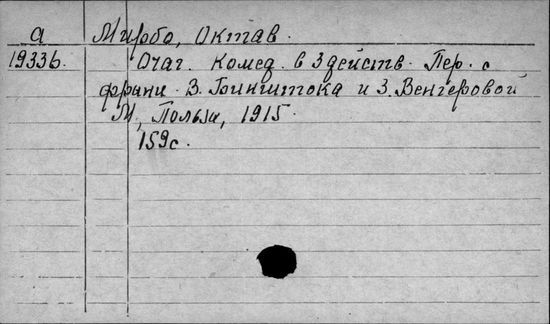 а Мирбо, Октав.
19336. Очаг. Комед. в 3 действ. Пер. с
франц. В. Бинштока и З. Венгеровой
М., Польза, 1915.
159 с.